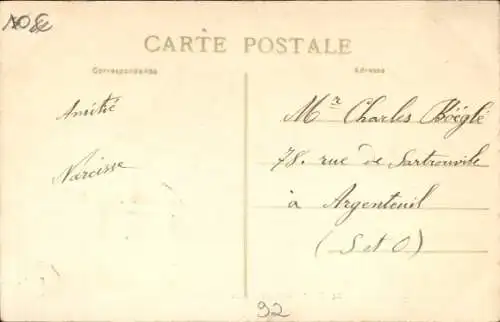 CARTE POSTALE
Correspondance
Adresse
Amitié
Narcisse
Mr Charles Boëglé
78. rue de Sartrouville
à Argenteuil
(S et O)
92